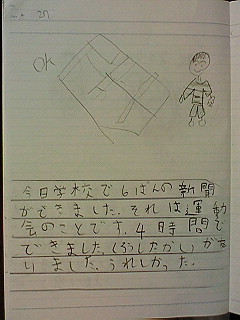 OK
今日学校で6ぱんの新聞
ができました。それは運動
会のことです。4時間で
できました。
いました。うれしかった。